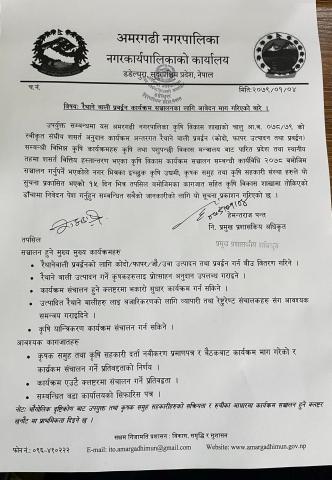 अमरगढी नगरपालिका
नगरकार्यपालिकाको कार्यालय
डडेल्धुरा, सुदूरपश्चिम प्रदेश, नेपाल
च.नं.
मिति:२०७९/०१/०४
विषय: रैथाने बाली प्रवर्द्धन कार्यक्रम सञ्चालनका लागि आवेदन माग गरिएको बारे ।
उपर्युक्त सम्बन्धमा यस अमरगढी नगरपालिका कृषि विकास शाखाको चालु आ.ब. २०७८/७९ को
स्वीकृत संघीय शसर्त अनुदान कार्यक्रम अन्तरगत रैथाने बाली प्रवर्द्धन (कोदो, फापर उत्पादन तथा प्रवर्द्धन)
सम्बन्धी विभिन्न कृषि कार्यक्रमहरु कृषि तथा पशुपन्छी विकास मन्त्रालय बाट पारित प्रदेश तथा स्थानीय
तहमा शसर्त वित्तिय हस्तान्तरण भएका कृषि विकास कार्यक्रम सञ्चालन सम्बन्धी कार्यविधि २०७८ बमोजिम
सञ्चालन गर्नुपर्ने भएकोले नगर भित्रका इच्छुक कृषि उद्यमी, कृषक समूह तथा कृषि सहकारी संस्था हरुले यो
सूचना प्रकाशित भएको १५ दिन भित्र तपसिल बमोजिमका कागजात सहित कृषि विकास शाखामा तोकिएको
ढाँचामा निवेदन पेश गर्नुहुन सम्बन्धित सबैको जानकारीको लागि यो सूचना प्रकाशन गरिएको छ ।
२०७९।०१।०४
हेमन्तराज पन्त
नि. प्रमुख प्रशासकिय अधिकृत
तपसिल
सञ्चालन हुने मुख्य मुख्य कार्यक्रमहरु
• रैथानेबाली प्रवर्द्धनको लागि कोदो/फापर/जौ/उवा उत्पादन तथा प्रवर्द्धन गर्न बीउ वितरण गरिने ।
• रैथाने बाली उत्पादन गर्ने कृषकहरुलाई प्रोत्साहन अनुदान उपलब्ध गराइने ।
• कार्यक्रम सञ्चालन हुने क्लष्टरमा भकारो सुधार कार्यक्रम गर्न सकिने ।
• उत्पादित रैथाने बालीहरु लाइ बजारिकरणको लागि व्यापारी तथा रेष्टुरेण्ट संचालकहरु संग आवश्यक
समन्वय गराइदिने ।
• कृषि यान्त्रिकरण कार्यक्रम गर्न सकिने ।
आवश्यक कागजातहरु
• कृषक समूह तथा कृषि सहकारी दर्ता नवीकरण प्रमाणपत्र र बैठकबाट कार्यक्रम माग गरेको र
कार्यक्रम संचालन गर्ने प्रतिवद्धताको निर्णय ।
• कार्यक्रम एउटै क्लष्टरमा संचालन गर्ने प्रतिवद्धता ।
• सम्बन्धित वडा कार्यालयको सिफारिस पत्र ।
नोट: भौगोलिक दृष्टिकोण बाट उपयुक्त तथा कृषक समूह सहकारीहरुको सक्रियता र रुचीका आधारमा कार्यक्रम सञ्चालन हुने क्लष्टर
छनौट मा प्राथमिकता दिइने छ ।
फोन नं.: ०९६-४१०२२२ E-mail: ito.amargadhimun@gmail.com Website: www.amargadhimun.gov.np